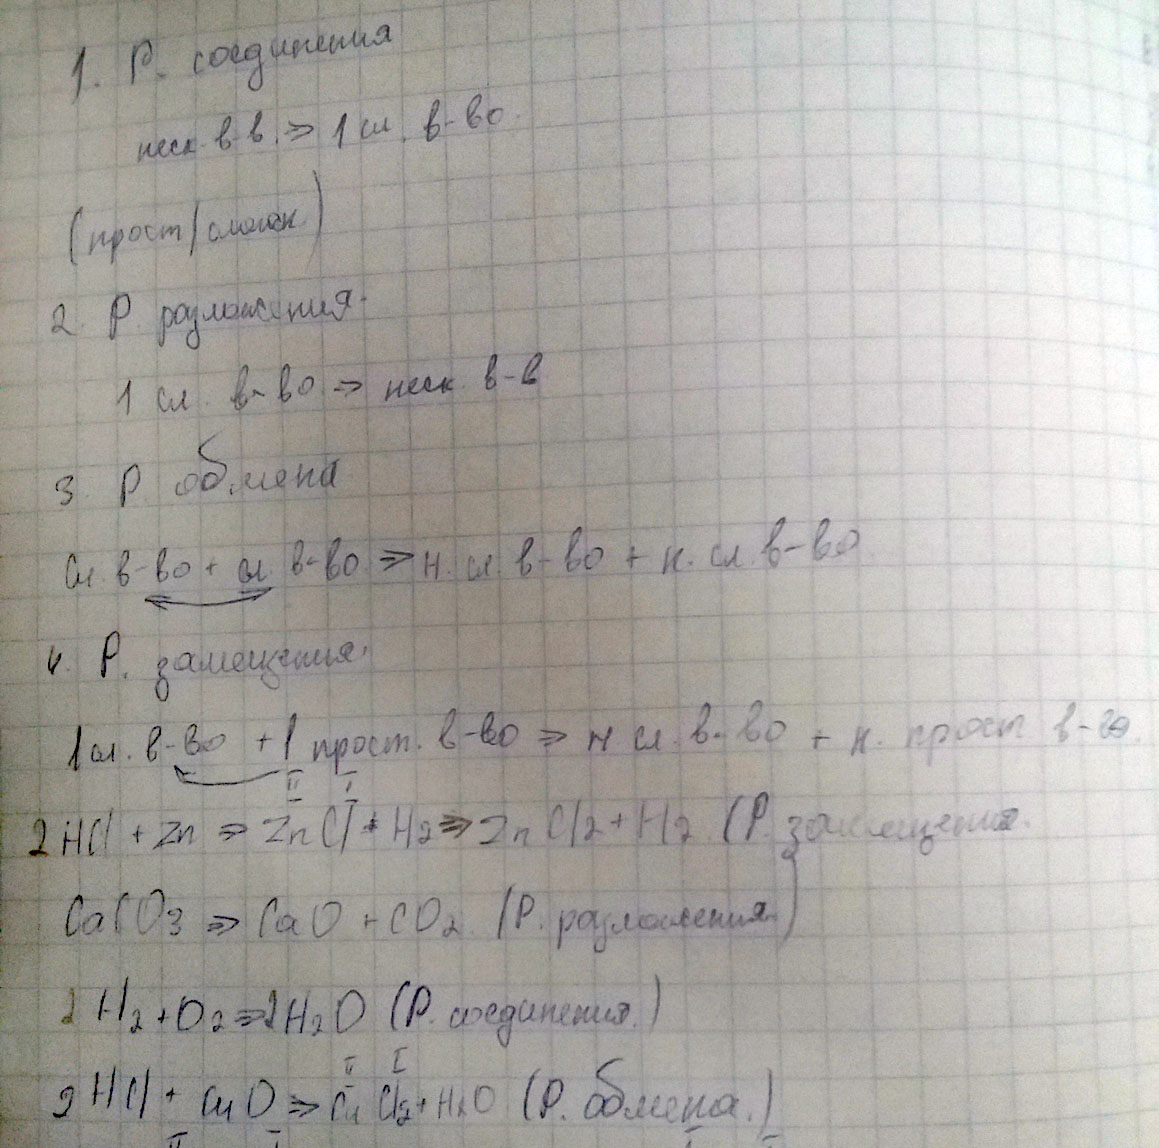 1. Р. соединения
неск. в-в. => 1 сл. в-во.
(прост/сложн.)
2. Р. разложения.
1 сл. в-во => неск. в-в
3. Р. обмена
Сл. в-во + сл. в-во => н. сл. в-во + н. сл. в-во
4. Р. замещения.
1 сл. в-во + 1 прост. в-во => н. сл. в-во + н. прост в-во.
II I
2HCl + Zn => ZnCl + H2 => ZnCl2 + H2 (Р. замещения.)
CaCO3 => CaO + CO2. (Р. разложения.)
2H2 + O2 => 2H2O (Р. соединения.)
II I
2HCl + CuO => CuCl2 + H2O (Р. обмена.)